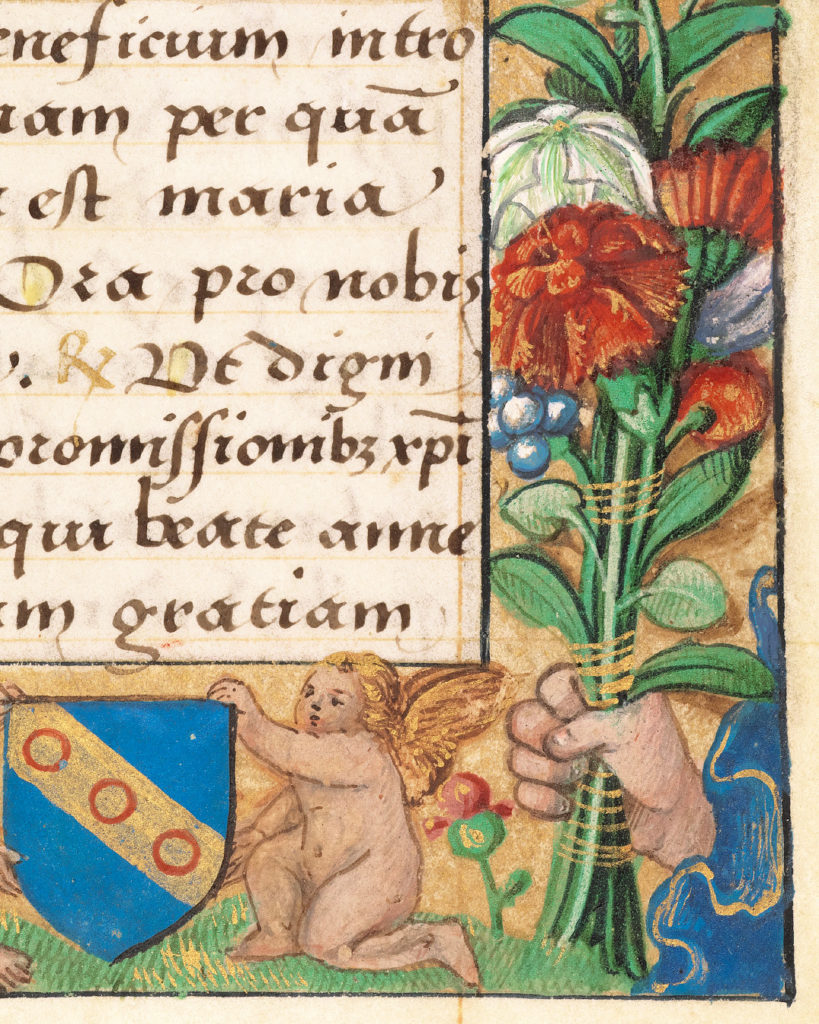 eneficium intro
iam per quā
est maria
Ora pro nobis
. ℟ Vt digni
promissionibꝫ xp̄i
qui beate anne
am gratiam